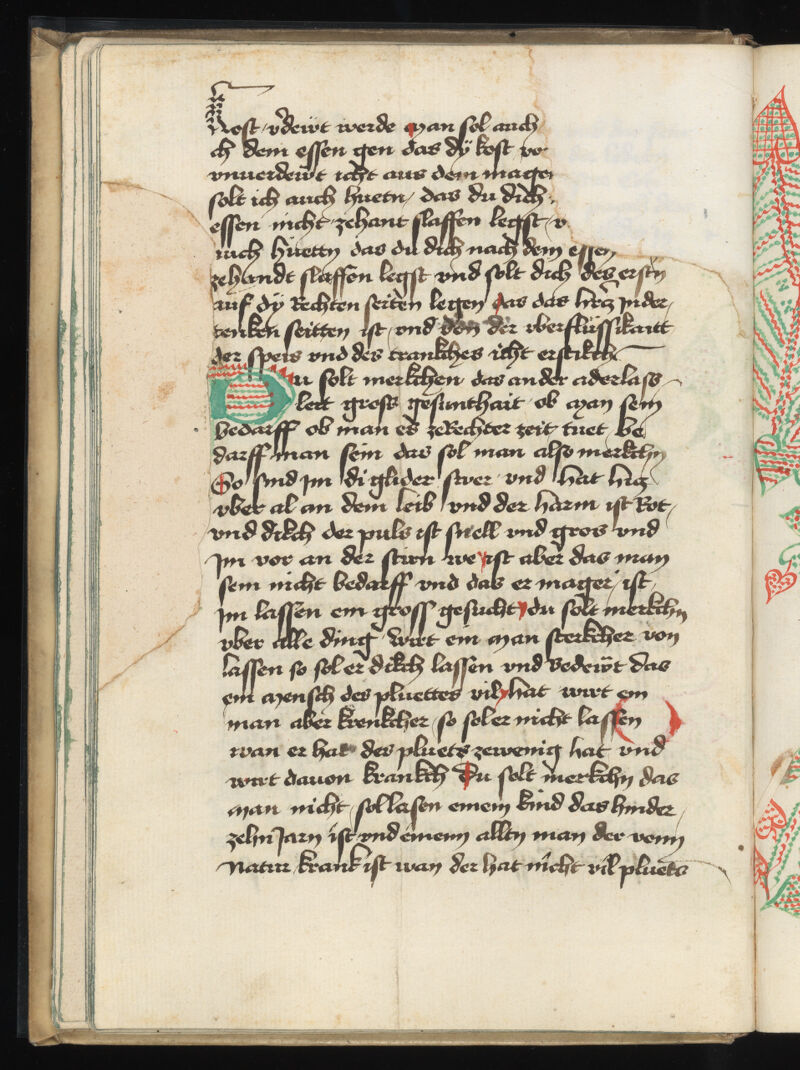 kost v̈dewt werde man sol auch
ch dem essen gen das dÿ kost vo
vnuerdewt icht aus dem mage
solt ich auch huetn das du dich
essen nicht zehant slaffen legst v
auch huettn das du dich nach dem essen
zehandt slaffen legst vnd solt dich des erstn
auf dÿ Rechten seiten legen das das hercz In der
tenken seitten ist vnd von der vberflussikaitt
der speis vnd des trankches icht erstikch
Du solt merkchen das an der aderlass
leit gross gesunthait ob man sein
bedarff ob man es zeRechter zeit tuet be
darff man sein das sol man also merkchn
So sind Im di glider swer vnd hat hicz
vber al an dem leib vnd der harm ist Rot
vnd dikch der puls ist snell vnd gros vnd
Im vor an der stirn we ist aber das man
sein nicht bedarff vnd das er mager ist
Im lassen ein gross gesucht du solt merkchn
vber alle ding wirt ein man sterkcher von
lassen so sol er dikch lassen vnd bedewt das
ein mensch des pluettes vil hat wirt ein
man aber krenkcher so sol er nicht lassen
wan er hat des pluets zewenig hat vnd
wirt dauon krankch Du solt merkchn das
man nicht sol lasen einem kind das hinder
zehn Jarn ist vnd einem alltn man der venn
Natur krank ist wan der hat nicht vil pluets